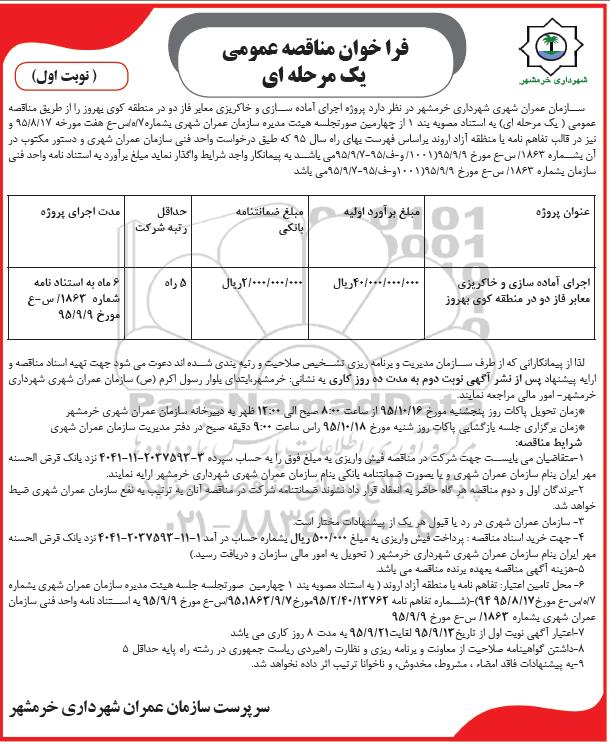 فراخوان مناقصه عمومی
یک مرحله ای
( نوبت اول )
شهرداری خرمشهر
سـازمان عمران شهری شهرداری خرمشهر در نظر دارد پروژه اجرای آماده سـازی و خاکریزی معابر فاز دو در منطقه کوی بهروز را از طریق مناقصه
عمومی ( یک مرحله ای) به استناد مصوبه بند ۱ از چهارمین صورتجلسه هیئت مدیره سازمان عمران شهری بشماره۷/ه/س-ع هفت مورخه ۹۵/۸/۱۷ و
نیز در قالب تفاهم نامه با منطقه آزاد اروند براساس فهرست بهای راه سال ۹۵ که طبق درخواست واحد فنی سازمان عمران شهری و دستور مکتوب در
آن بشـماره ۱۸۶۳/ س-ع مورخ ۹۵/۹/۹(۱۰۰۱/ و-ف/۹۵-۹۵/۹/۷می باشـد به پیمانکار واجد شرایط واگذار نماید مبلغ برآورد به استناد نامه واحد فنی
سازمان بشماره ۱۸۶۳/ س-ع مورخ ۹۵/۹/۹(۱۰۰۱و-ف/۹۵-۹۵/۹/۷می باشد
عنوان پروژه
مبلغ برآورد اولیه
مبلغ ضمانتنامه بانکی
حداقل رتبه شرکت
مدت اجرای پروژه
اجرای آماده سازی و خاکریزی
معابر فاز دو در منطقه کوی بهروز
۴۰/۰۰۰/۰۰۰/۰۰۰ریال
۲/۰۰۰/۰۰۰/۰۰۰ریال
۵ راه
۶ ماه به استناد نامه
شماره ۱۸۶۳/ س-ع
مورخ ۹۵/۹/۹
لذا از پیمانکارانی که از طرف سـازمان مدیریت و برنامه ریزی تشـخیص صلاحیت و رتبه بندی شده اند دعوت می شود جهت تهیه اسناد مناقصه و
ارایه پیشنهاد پس از نشر آگهی نوبت دوم به مدت ده روز کاری به نشانی: خرمشهر،ابتدای بلوار رسول اکرم (ص) سازمان عمران شهری شهرداری
خرمشهر- امور مالی مراجعه نمایند.
*زمان تحویل پاکات روز پنجشنبه مورخ ۹۵/۱۰/۱۶ از ساعت ۸:۰۰ صبح الی ۱۲:۰۰ ظهر به دبیرخانه سازمان عمران شهری خرمشهر
*زمان برگزاری جلسه بازگشایی پاکات روز شنبه مورخ ۹۵/۱۰/۱۸ راس ساعت ۹:۰۰ دقیقه صبح در دفتر مدیریت سازمان عمران شهری
شرایط مناقصه:
۱-متقاضیان می بایسـت جهت شرکت در مناقصه فیش واریزی به مبلغ فوق را به حساب سپرده ۳-۲۰۳۷۵۹۳-۱۱-۴۰۴۱ نزد بانک قرض الحسنه
مهر ایران بنام سازمان عمران شهری و یا بصورت ضمانتنامه بانکی بنام سازمان عمران شهری شهرداری خرمشهر ارایه نمایند.
۲-برندگان اول و دوم مناقصه هر گاه حاضر به انعقاد قرار داد نشوند ضمانتنامه شرکت در مناقصه آنان به ترتیب به نفع سازمان عمران شهری ضبط
خواهد شد.
۳- سازمان عمران شهری در رد یا قبول هر یک از پیشنهادات مختار است.
۴- جهت خرید اسناد مناقصه : پرداخت فیش واریزی به مبلغ ۵۰۰/۰۰۰ ریال بشماره حساب در آمد ۱-۲۰۳۷۵۹۳-۱۱-۴۰۴۱ نزد بانک قرض الحسنه
مهر ایران بنام سازمان عمران شهری شهرداری خرمشهر ( تحویل به امور مالی سازمان و دریافت رسید.)
۵-هزینه آگهی مناقصه بعهده برنده مناقصه می باشد.
۶- محل تامین اعتبار: تفاهم نامه با منطقه آزاد اروند ( به استناد مصوبه بند ۱ چهارمین صورتجلسه جلسه هیئت مدیره سازمان عمران شهری بشماره
۷/ه/س-ع مورخ۹۵/۸/۱۷ ۹۴)-(شـماره تفاهم نامه ۹۵/۲/۴۰/۱۳۷۶۲مورخ۹۵،۱۸۶۳/۹/۷/س-ع مورخ ۹۵/۹/۹ به اسـتناد نامه واحد فنی سازمان
عمران شهری بشماره ۱۸۶۳/ س-ع مورخ ۹۵/۹/۹
۷-اعتبار آگهی نوبت اول از تاریخ۹۵/۹/۱۳ لغایت۹۵/۹/۲۱ به مدت ۸ روز کاری می باشد
۸-داشتن گواهینامه صلاحیت از معاونت و برنامه ریزی و نظارت راهبردی ریاست جمهوری در رشته راه پایه حداقل ۵
۹-به پیشنهادات فاقد امضاء ، مشروط، مخدوش، و ناخوانا ترتیب اثر داده نخواهد شد.
سرپرست سازمان عمران شهرداری خرمشهر